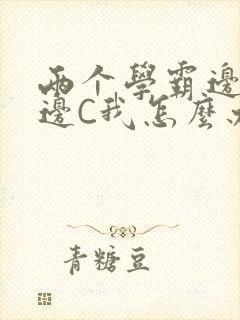 两个學霸邊
邊C我怎麼
青糖豆